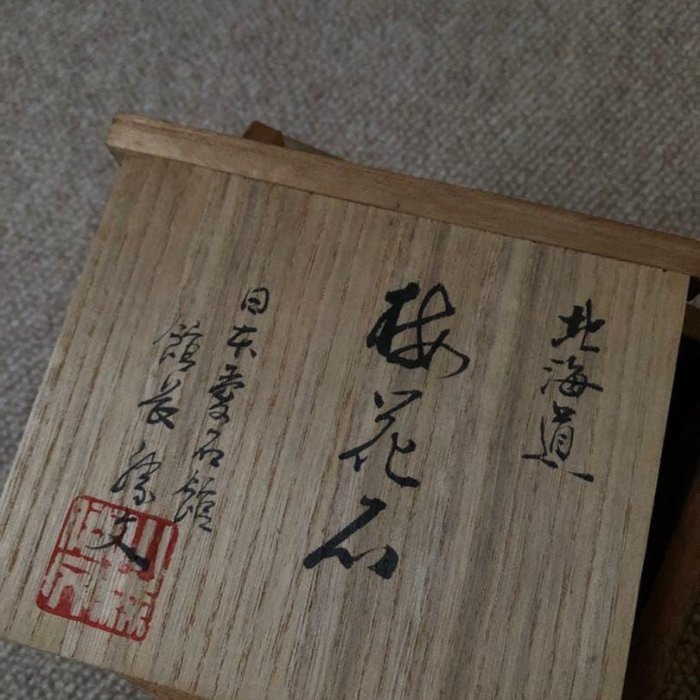 北海道
梅花石
日本愛石館
館長勝文